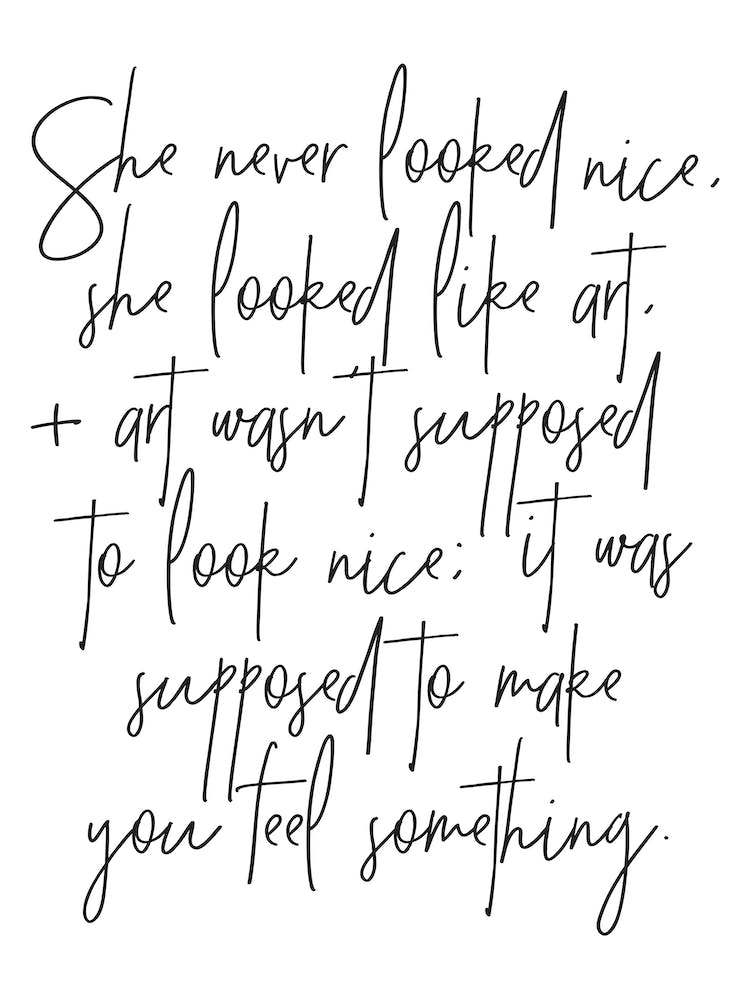 She never looked nice,
she looked like art,
+ art wasn't supposed
to look nice; it was
supposed to make
you feel something.